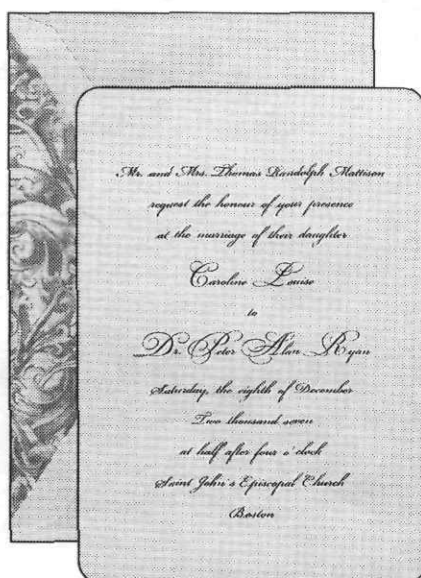 Mr. and Mrs. Thomas Randolph Mattison
request the honour of your presence
at the marriage of their daughter
Caroline Louise
to
Dr. Peter Alan Ryan
Saturday, the eighth of December
Two thousand seven
at half after four o'clock
Saint John's Episcopal Church
Boston